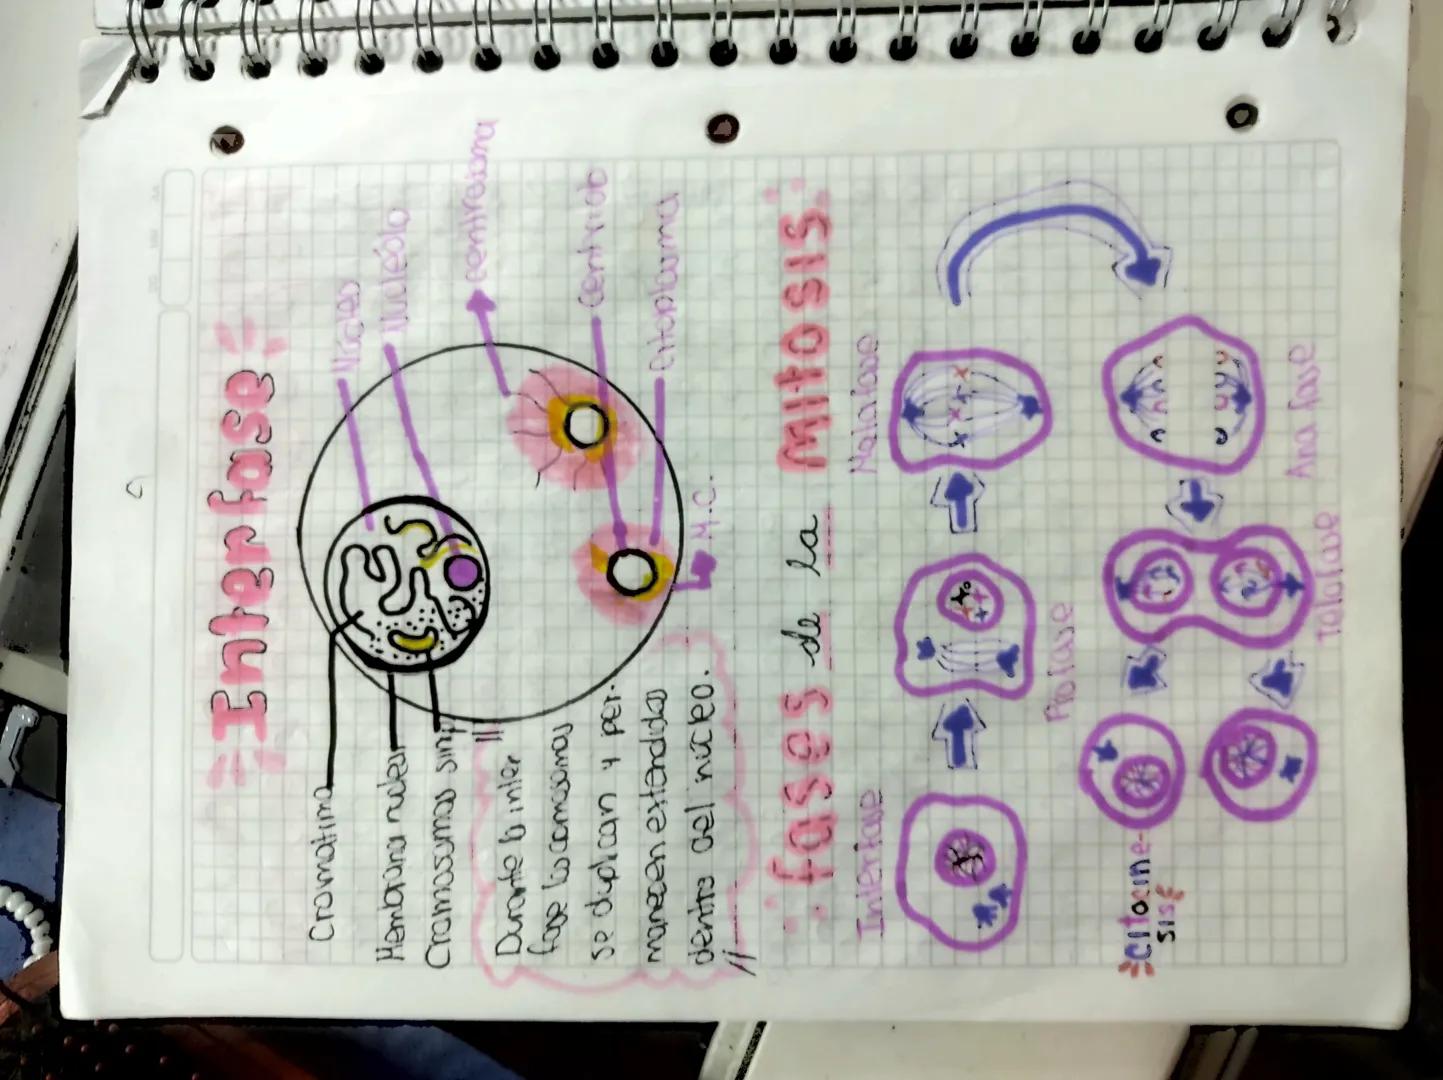 Interfase
Núcleo
Nucleólo
centrosoma
Centriolo
Citoplasma
M.C.
Cromatina
Membrana nuclear
Cromosomas simp
Durante la inter
fase los cromosomas
se duplican y per-
manecen extendidos
dentro del núcleo.
fases de la Mitosis
Interfase
Profase
Metafase
Ana fase
Telofase
Citocine-
sis